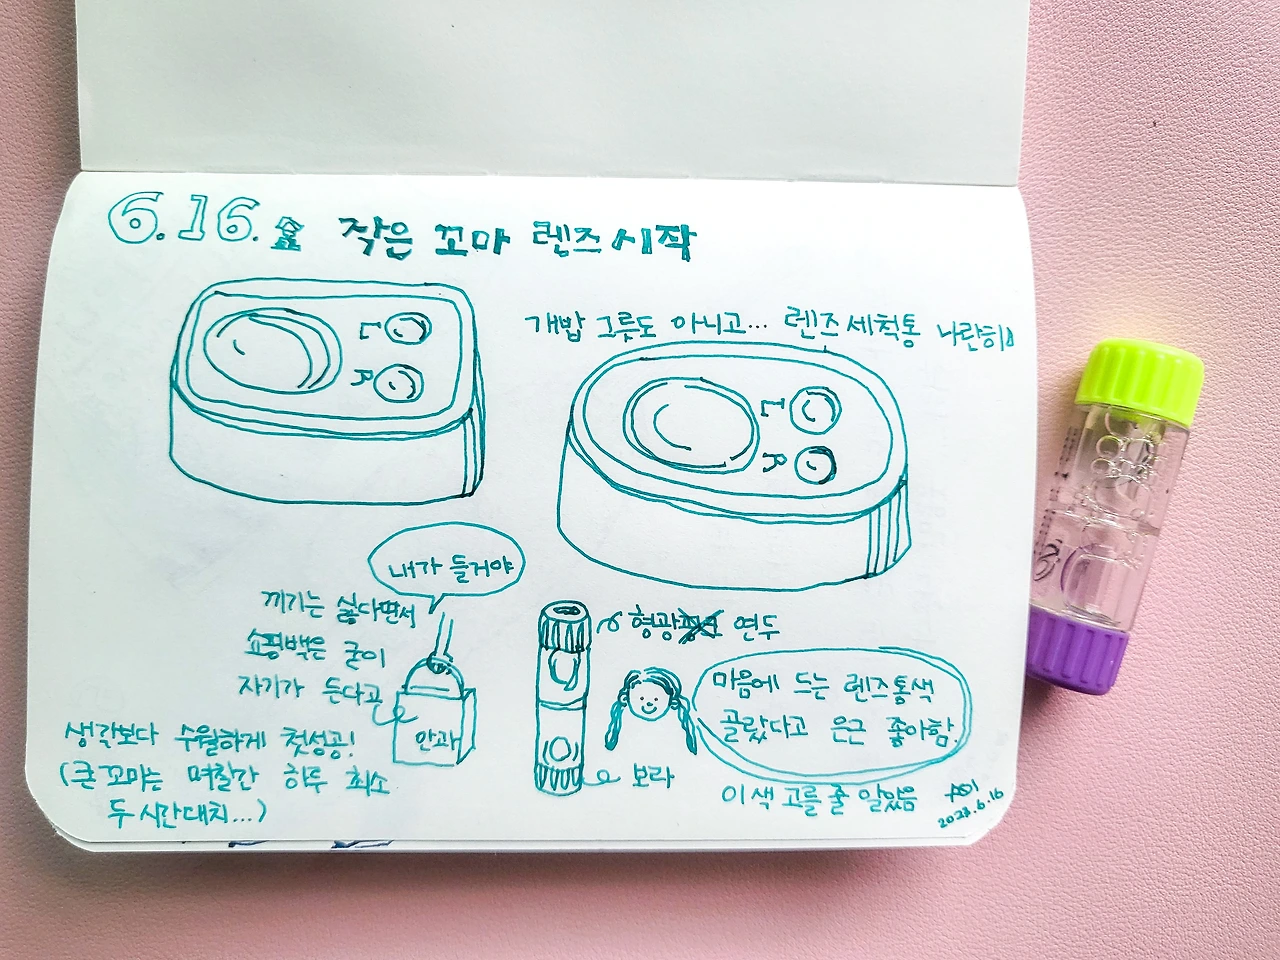 6.16. 金 작은 꼬마 렌즈 시작
개밥 그릇도 아니고... 렌즈 세척통 나란히
L
R
L
R
내가 들거야
끼기는 싫다면서
쇼핑백은 굳이
자기가 든다고
안과
생각보다 수월하게 첫성공!
(큰꼬마는 며칠간 하루 최소
두시간대치...)
형광 연두
보라
마음에 드는 렌즈통색
골랐다고 은근 좋아함.
이색 고를 줄 알았음
2023.6.16